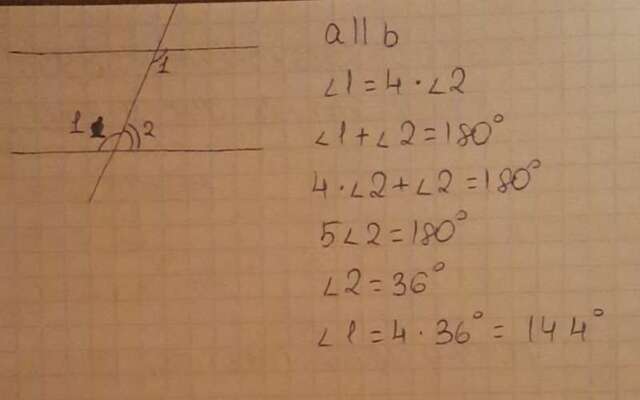 1
1 2
a || b
∠1 = 4 · ∠2
∠1 + ∠2 = 180°
4 · ∠2 + ∠2 = 180°
5∠2 = 180°
∠2 = 36°
∠1 = 4 · 36° = 144°